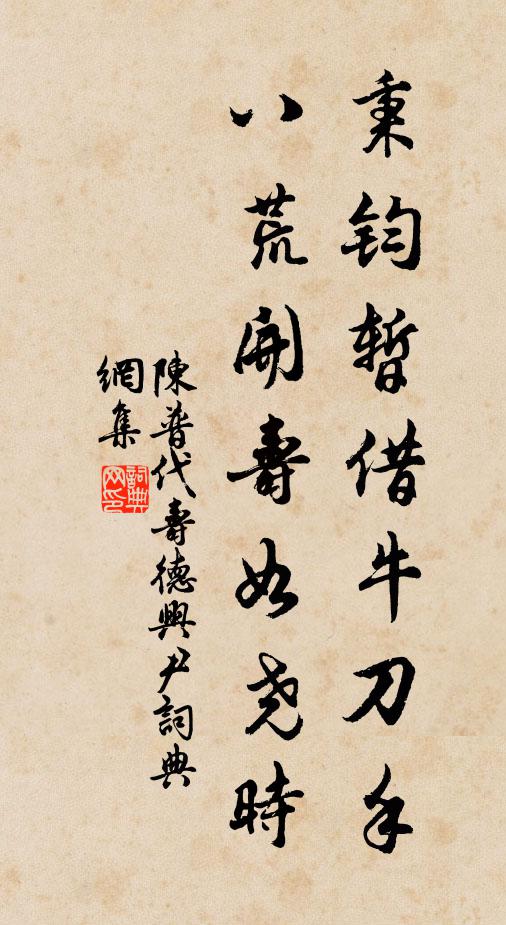 秉鈞暫借牛刀手
八荒開壽如尧時
陳普代壽德興尹詞典
網集
詞典
网印